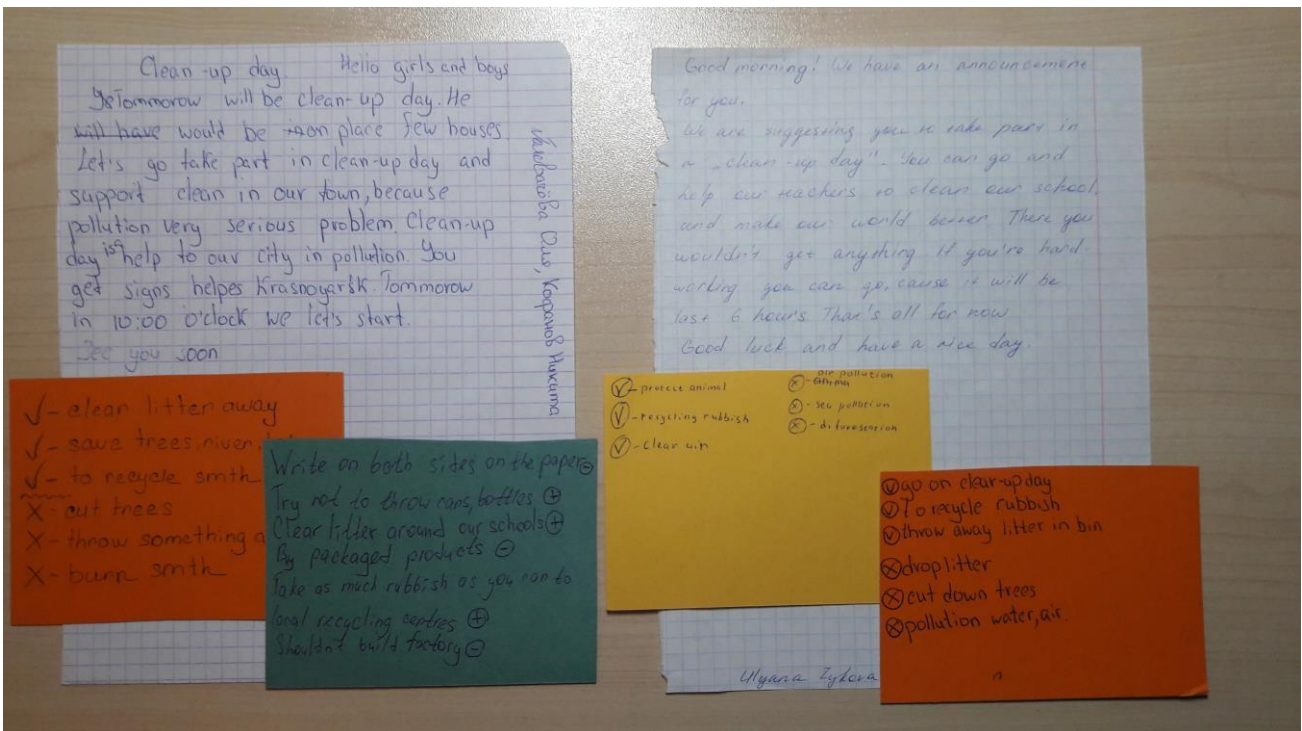 Clean-up day. Hello girls and boys
Tommorow will be clean-up day. He
will have would be on place few houses
Let's go take part in clean-up day and
support clean in our town, because
pollution very serious problem. Clean-up
day is help to our city in pollution. You
get signs helpes Krasnoyarsk. Tommorow
in 10:00 o'clock we let's start.
See you soon
Оля, Кофанов Никита
✓- clean litter away
✓- save trees, river,
✓- to recycle smth
X- cut trees
X- throw something a
X- burn smth
Write on both sides on the paper ⊖
Try not to throw cans, bottles ⊕
Clear litter around our schools ⊕
By packaged products ⊖
Take as much rubbish as you can to
local recycling centres ⊕
Shouldn't build factory ⊖
Good morning! We have an announcement
for you.
We are suggesting you to take part in
a „clean-up day". You can go and
help our teachers to clean our school,
and make our world better. There you
wouldn't get anything. If you're hard-
working you can go, cause it will be
last 6 hours. That's all for now.
Good luck and have a nice day.
Ulyana Zykova
✓- protect animal
✓- recycling rubbish
✓- clear air
air pollution
X- sea pollution
X-
✓ go on clear-up day
✓ To recycle rubbish
✓ throw away litter in bin
X drop litter
X cut down trees
X pollution water, air.